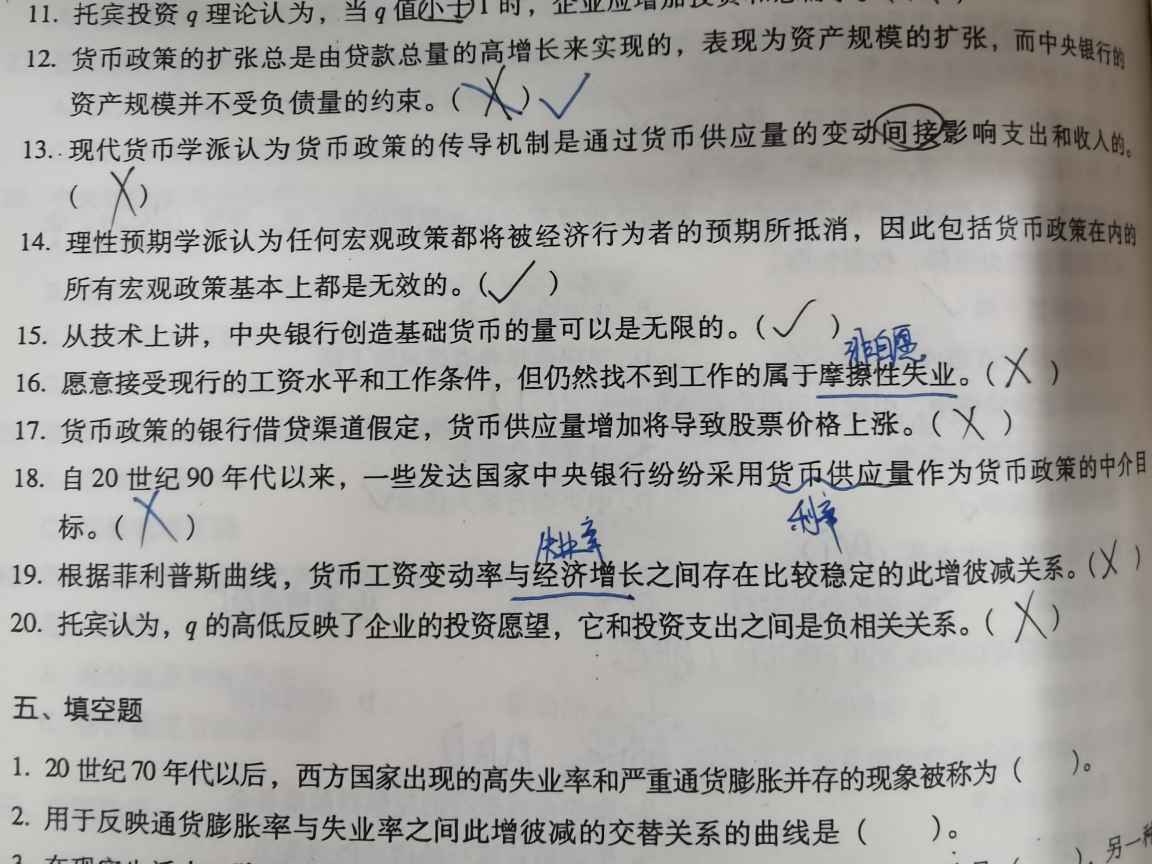 11. 托宾投资 q 理论认为，当 q 值小于 1 时，企业应增加投资
12. 货币政策的扩张总是由贷款总量的高增长来实现的，表现为资产规模的扩张，而中央银行的
资产规模并不受负债量的约束。（ ✗ ）✓
13. 现代货币学派认为货币政策的传导机制是通过货币供应量的变动间接影响支出和收入的。
（ ✗ ）
14. 理性预期学派认为任何宏观政策都将被经济行为者的预期所抵消，因此包括货币政策在内的
所有宏观政策基本上都是无效的。（ ✓ ）
15. 从技术上讲，中央银行创造基础货币的量可以是无限的。（ ✓ ）
非自愿
16. 愿意接受现行的工资水平和工作条件，但仍然找不到工作的属于摩擦性失业。（ ✗ ）
17. 货币政策的银行借贷渠道假定，货币供应量增加将导致股票价格上涨。（ ✗ ）
18. 自 20 世纪 90 年代以来，一些发达国家中央银行纷纷采用货币供应量作为货币政策的中介目
标。（ ✗ ）
利率
失业率
19. 根据菲利普斯曲线，货币工资变动率与经济增长之间存在比较稳定的此增彼减关系。（ ✗ ）
20. 托宾认为，q 的高低反映了企业的投资愿望，它和投资支出之间是负相关关系。（ ✗ ）
五、填空题
1. 20 世纪 70 年代以后，西方国家出现的高失业率和严重通货膨胀并存的现象被称为（ ）。
2. 用于反映通货膨胀率与失业率之间此增彼减的交替关系的曲线是（ ）。
另一种